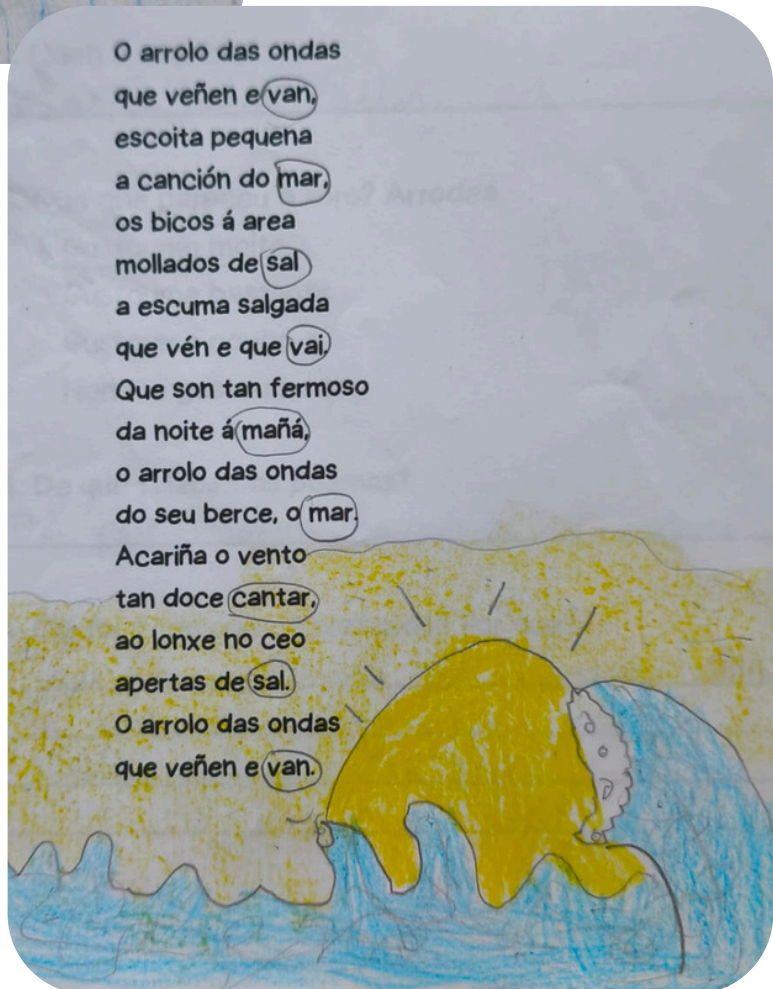 O arrolo das ondas
que veñen e van,
escoita pequena
a canción do mar,
os bicos á area
mollados de sal
a escuma salgada
que vén e que vai.
Que son tan fermoso
da noite á mañá,
o arrolo das ondas
do seu berce, o mar.
Acariña o vento
tan doce cantar,
ao lonxe no ceo
apertas de sal.
O arrolo das ondas
que veñen e van.